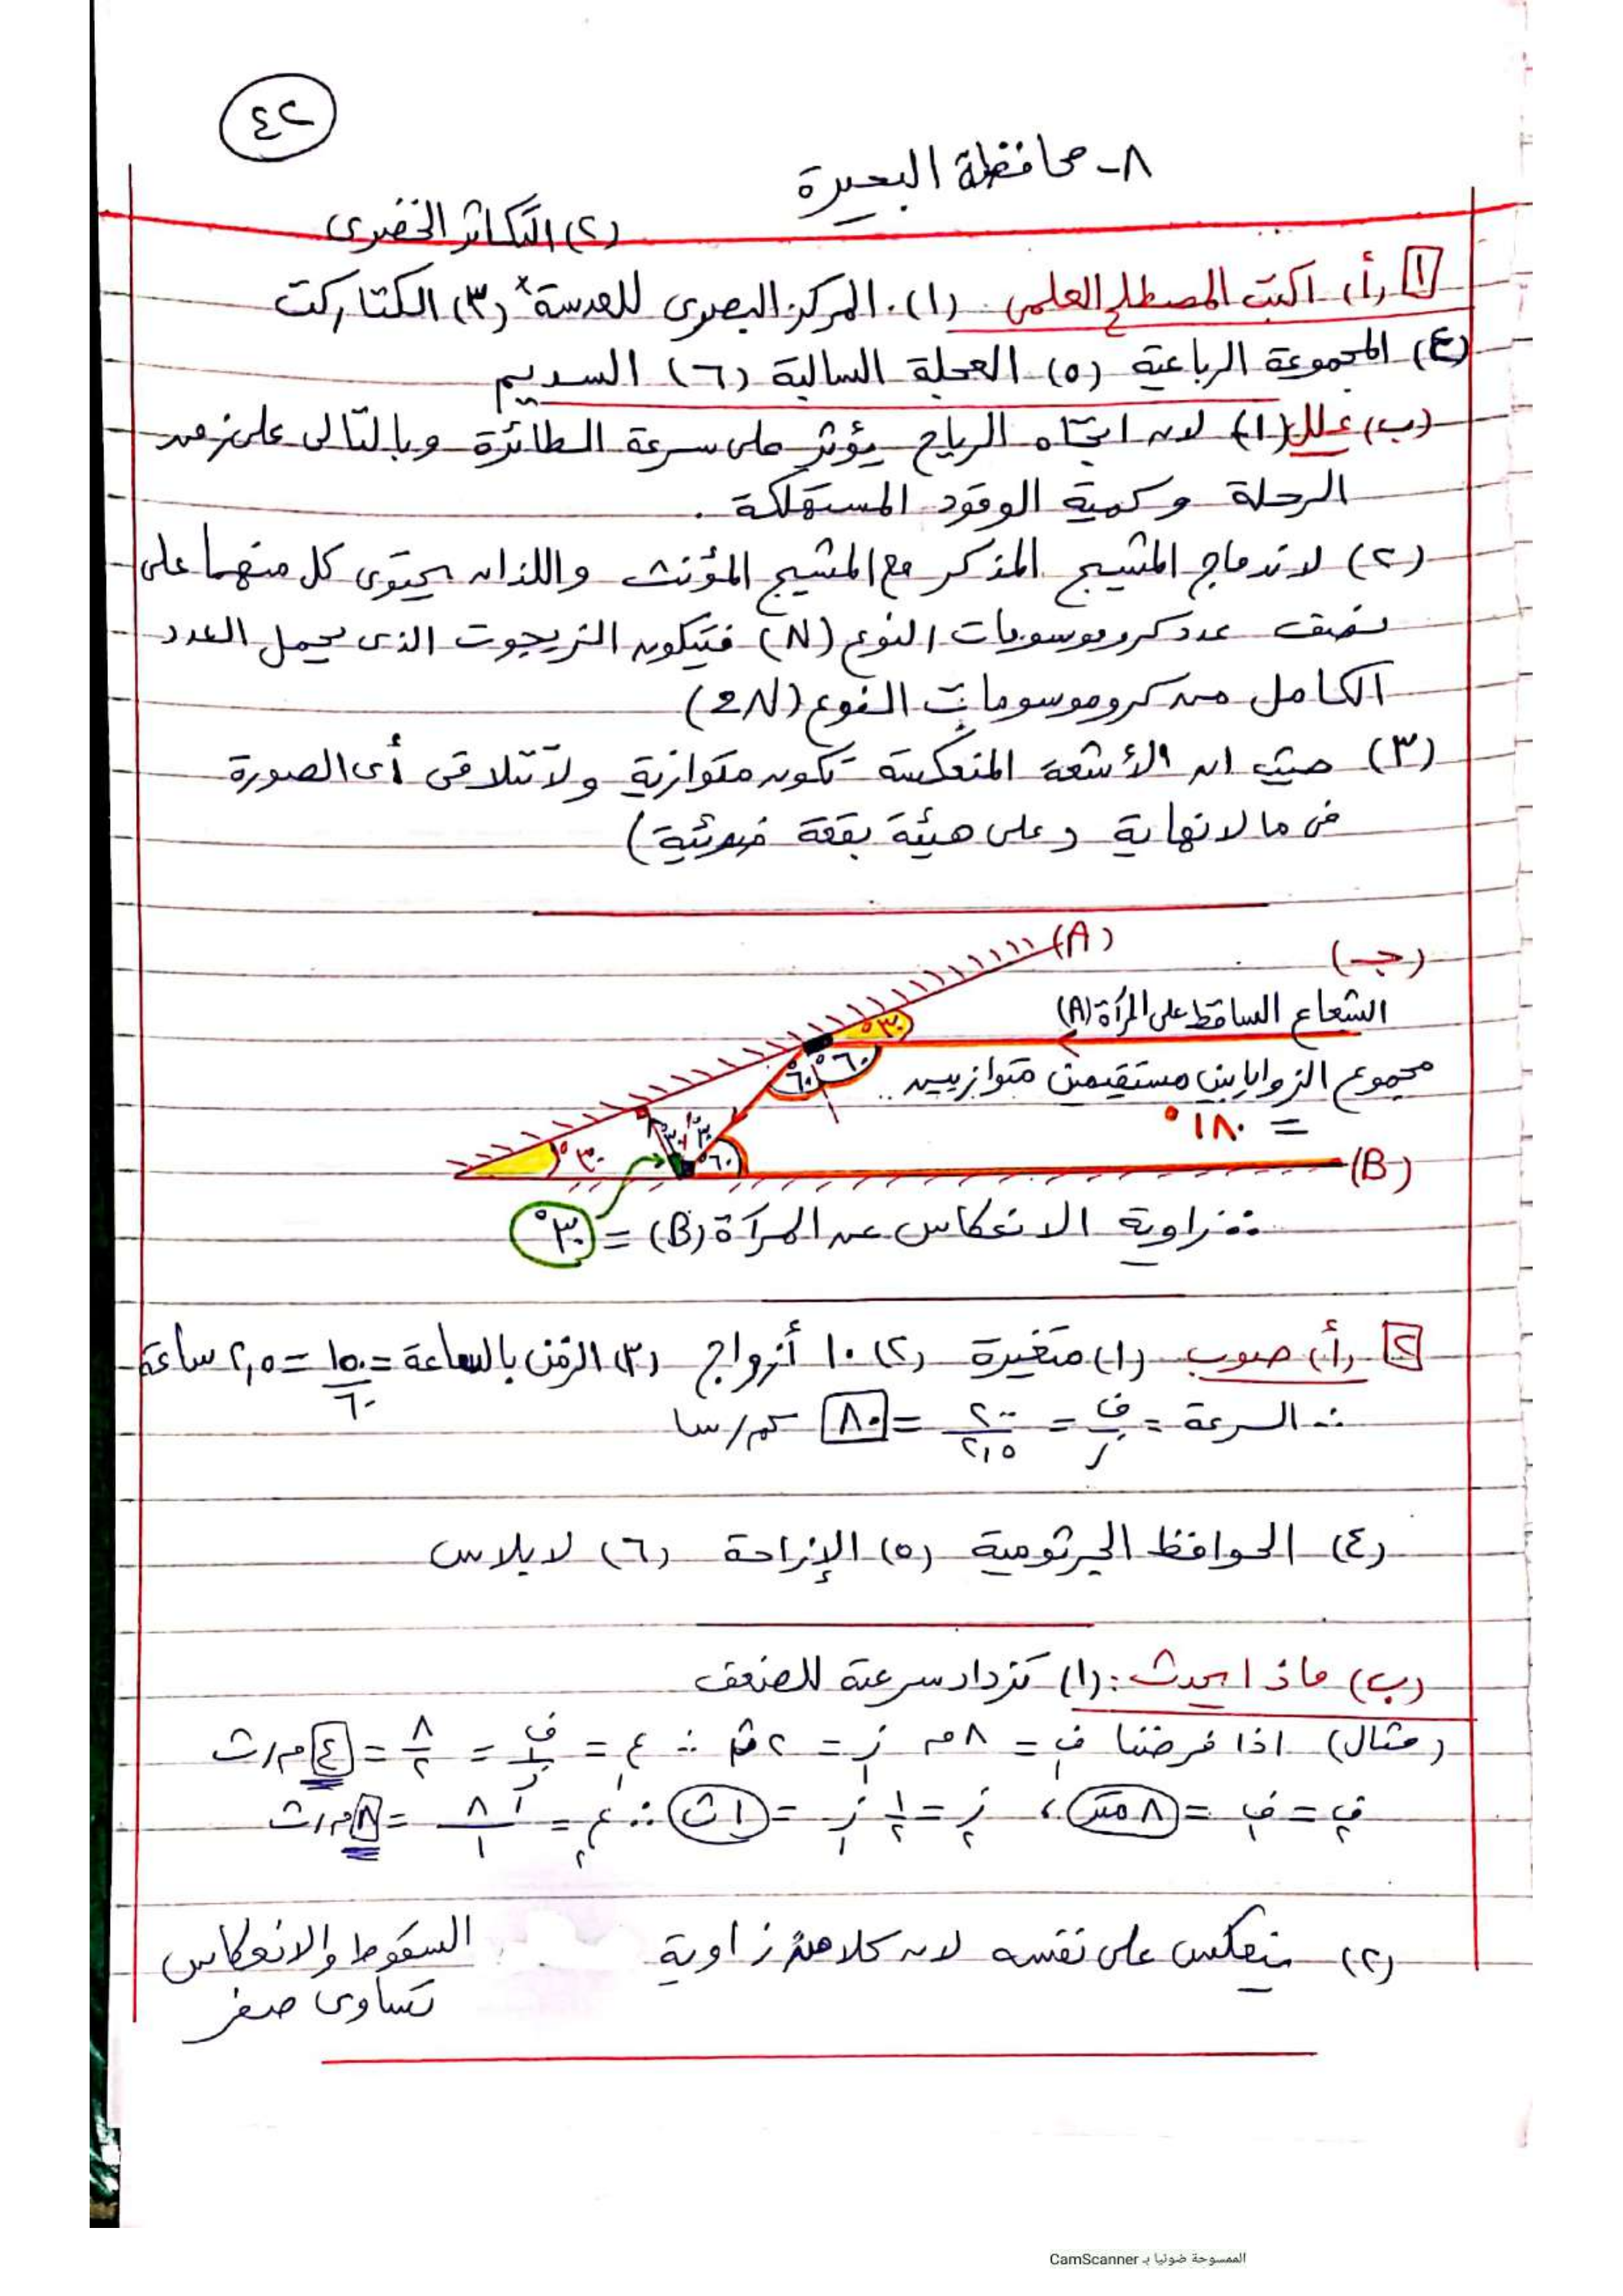 ٤٢
٨- محافظة البحيرة
(٢) التكاثر الخضرى
١ (أ) اكتب المصطلح العلمى (١) المركز البصرى للعدسة * (٣) الكتاركت
(٤) المجموعة الرباعية (٥) العجلة السالبة (٦) السديم
(ب) علل (١) لان اتجاه الرياح يؤثر على سرعة الطائرة وبالتالى على زمن
الرحلة وكمية الوقود المستهلكة .
(٢) لاندماج المشيج المذكر مع المشيج المؤنث واللذان يحتوى كل منهما على
نصف عدد كروموسومات النوع (N) فيتكون الزيجوت الذى يحمل العدد
الكامل من كروموسومات النوع (2N)
(٣) حيث ان الأشعة المنعكسة تكون متوازية ولا تتلاقى أى الصورة
فى مالانهاية (على هيئة بقعة ضوئية)
(A)
(جـ)
الشعاع الساقط على المرآة (A)
٣٠°
٦٠° ٦٠°
مجموع الزوايا بين مستقيمين متوازيين ..
= ١٨٠°
٣٠° ٣٠° ٣٠° ٦٠° (B)
∴ زاوية الانعكاس عن المرآة (B) = ٣٠°
٢ (أ) صوب (١) متغيرة (٢) ١٠ أزواج (٣) الزمن بالساعة = ١٥٠/٦٠ = ٢,٥ ساعة
∴ السرعة = ف/ز = ٢٠٠/٢,٥ = ٨٠ كم/سا
(٤) الحوافظ الجرثومية (٥) الإزاحة (٦) لابلاس
(ب) ماذا يحدث : (١) تزداد سرعته للضعف
(مثال) اذا فرضنا ف١ = ٨ م ز١ = ٢ ث ∴ ع١ = ف١/ز١ = ٨/٢ = ٤ م/ث
ف٢ = ف١ = ٨ متر ، ز٢ = ١/٢ ز١ = ١ ث ∴ ع٢ = ٨/١ = ٨ م/ث
(٢) ينعكس على نفسه لان كلا من زاوية السقوط والانعكاس
تساوى صفر
الممسوحة ضوئيا بـ CamScanner